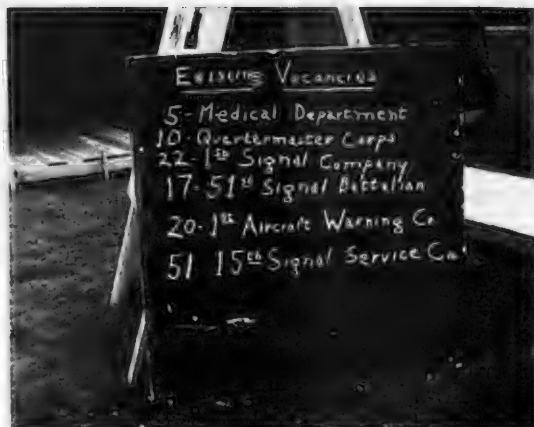 Existing Vacancies
5-Medical Department
10-Quartermaster Corps
22-1st Signal Company
17-51st Signal Battalian
20-1st Aircraft Warning Co
51 15th Signal Service Co.